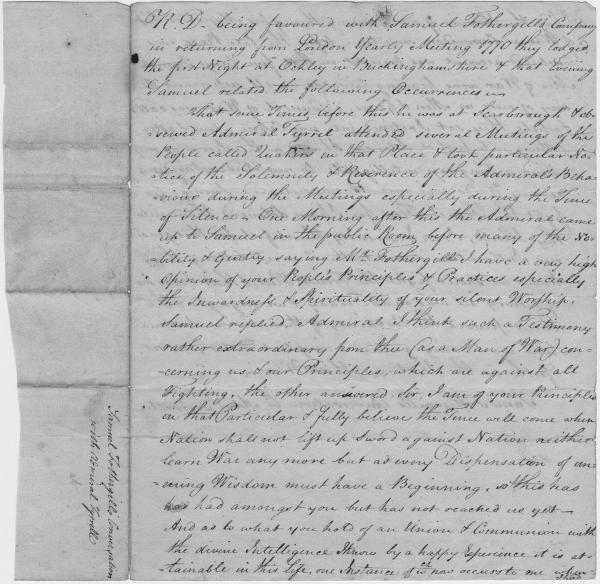 R. D. being favoured with Samuel Fothergill's Company
in returning from London Yearly Meeting 1770 they lodged
the first Night at Ockley in Buckinghamshire & that Evening
Samuel related the following Occurrences —
That some Times before this he was at Scarbrough & ob-
served Admiral Tyrrel attended several Meetings of the
People called Quakers in that Place & took particular No-
tice of the Solemnity & Reverence of the Admiral's Beha-
viour during the Meetings especially during the Time
of Silence. One Morning after this the Admiral came
up to Samuel in the public Room before many of the No-
bility & Gentry saying Mr. Fothergill I have a very high
Opinion of your People's Principles & Practices especially
the Inwardness & Spirituality of your silent Worship.
Samuel replied, Admiral I think such a Testimony
rather extraordinary from thee (as a Man of War) con-
cerning us & our Principles, which are against all
Fighting, the other answered Sir, I am of your Principles
in that Particular & fully believe the Time will come when
Nation shall not lift up Sword against Nation neither
learn War any more but as every Dispensation of un-
erring Wisdom must have a Beginning, so this has
had amongst you but has not reached us yet —
And as to what you hold of an Union & Communion with
the divine Intelligence I know by a happy Experience it is at-
tainable in this Life, one Instance of wch. now occurs to me when
I had
Samuel Fothergill's Conversation
with Admiral Tyrrell